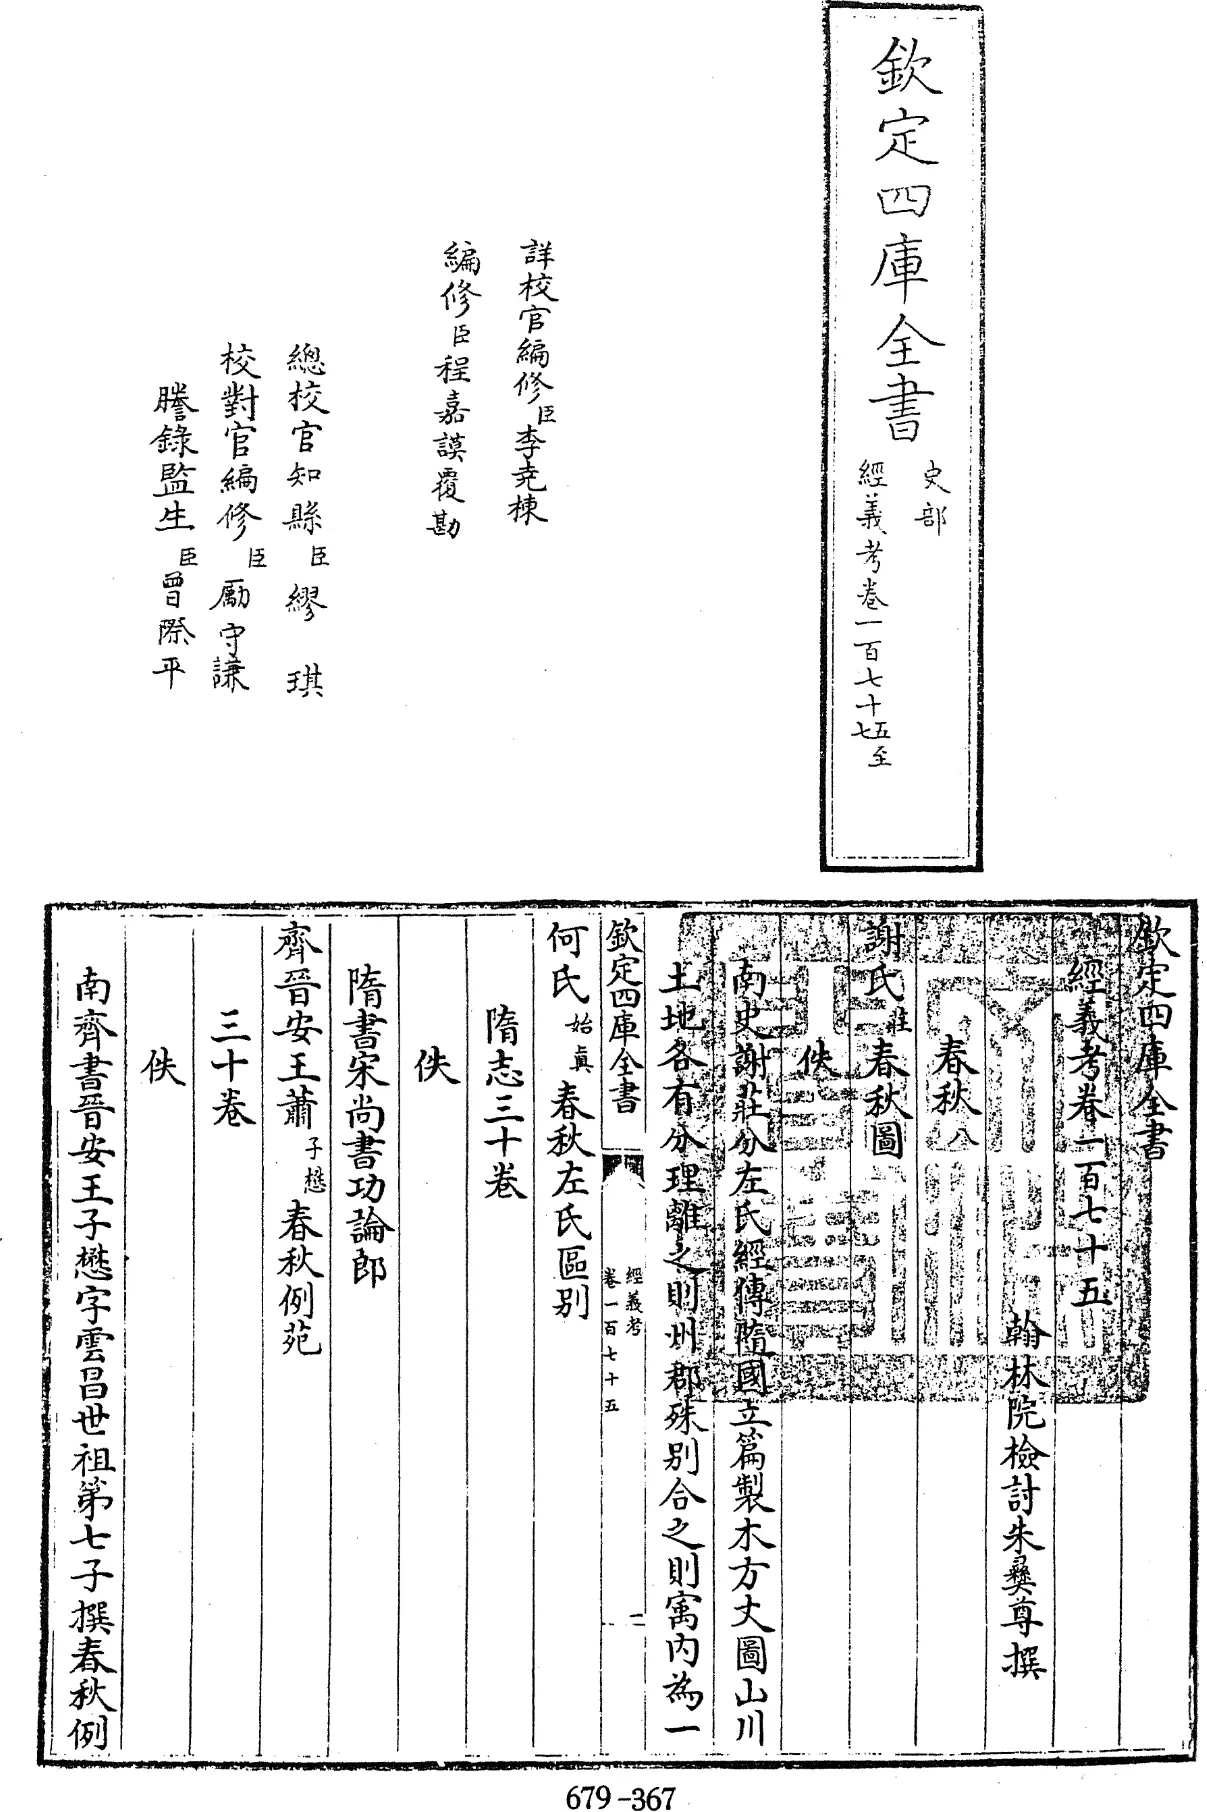 欽定四庫全書
史部
經義考卷一百七十五至
七
詳校官編修臣李堯棟
編修臣程嘉謨覆勘
總校官知縣臣繆琪
校對官編修臣勵守謙
謄錄監生臣曾際平
欽定四庫全書
經義考卷一百七十五
翰林院檢討朱彝尊撰
春秋八
謝氏莊春秋圖
佚
南史謝莊分左氏經傳隨國立篇製木方丈圖山川
土地各有分理離之則州郡殊别合之則寓内為一
欽定四庫全書
經義考
卷一百七十五
何氏始真春秋左氏區别
隋志三十卷
佚
隋書宋尚書功論郎
齊晉安王蕭子懋春秋例苑
三十卷
佚
南齊書晉安王子懋字雲昌世祖第七子撰春秋例
679-367